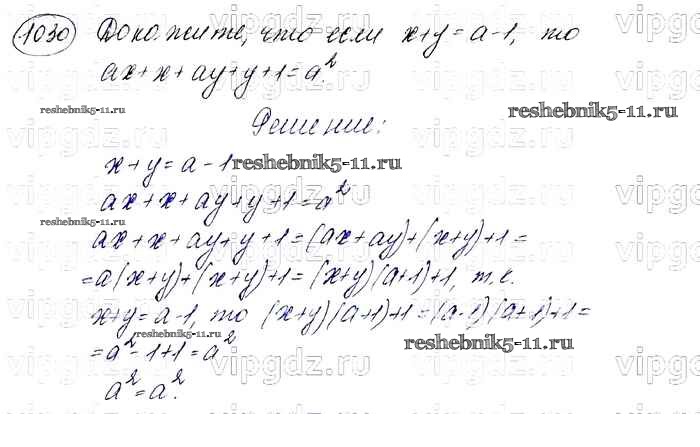 1030 Докажите, что если x+y=a-1, то
ax+x+ay+y+1=a².
reshebnik5-11.ru
reshebnik5-11.ru
Решение:
x+y=a-1
reshebnik5-11.ru
ax+x+ay+y+1=a²
reshebnik5-11.ru
ax+x+ay+y+1=(ax+ay)+(x+y)+1=
=a(x+y)+(x+y)+1=(x+y)(a+1)+1, т.к.
x+y=a-1, то (x+y)(a+1)+1=(a-1)(a+1)+1=
reshebnik5-11.ru
=a²-1+1=a²
reshebnik5-11.ru
a²=a².
vipgdz.ru